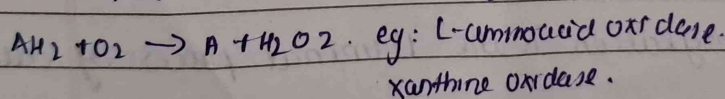 AH2 + O2 → A + H2O2. eg: L-aminoacid oxidase.
xanthine oxidase.